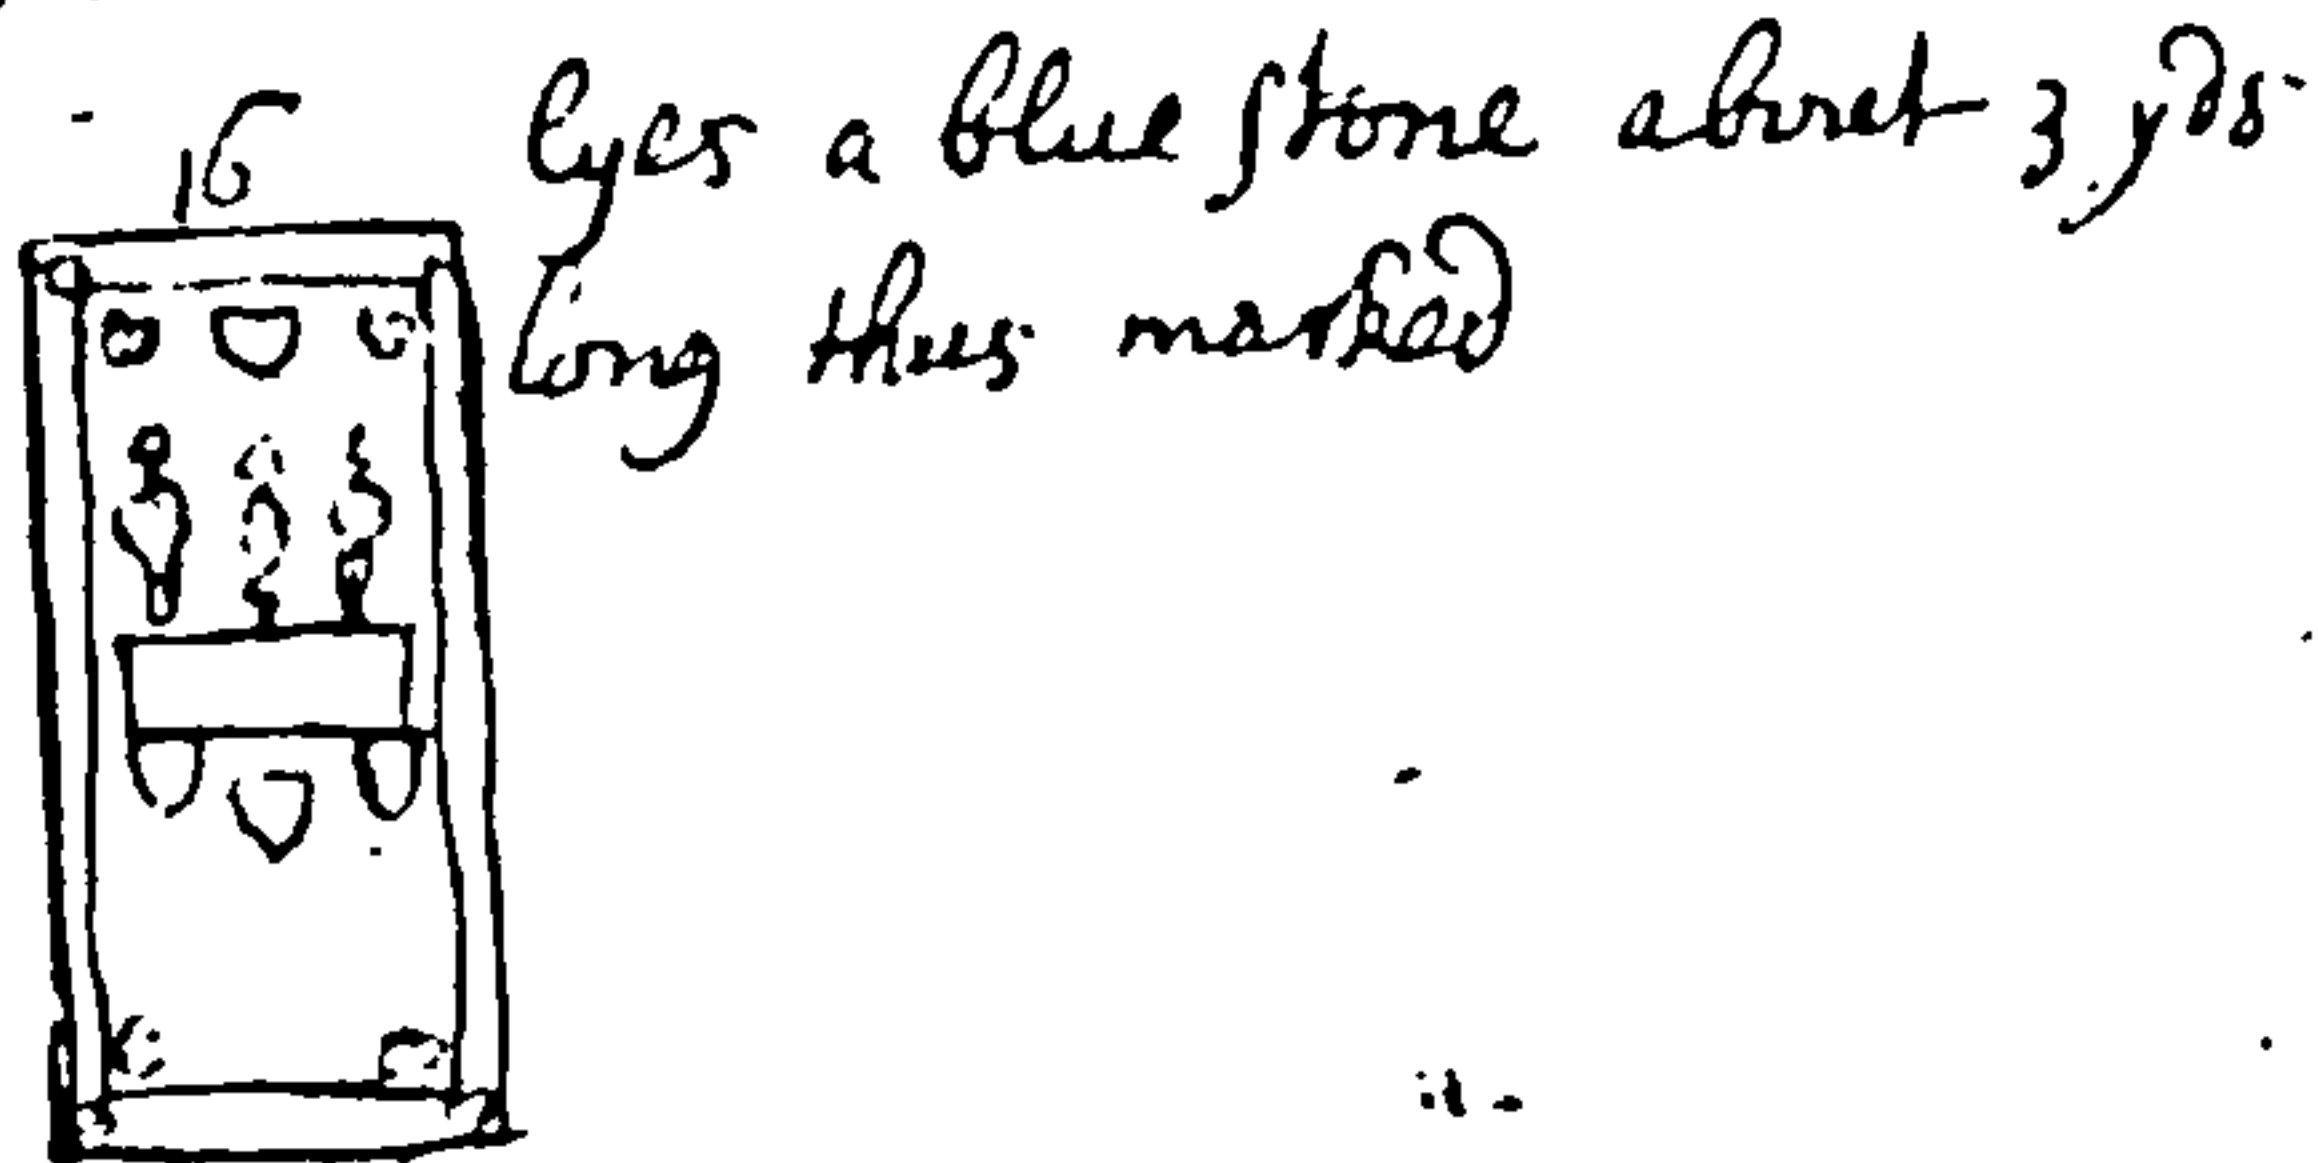 16 lyes a blue stone about 3 yds
long thus marked